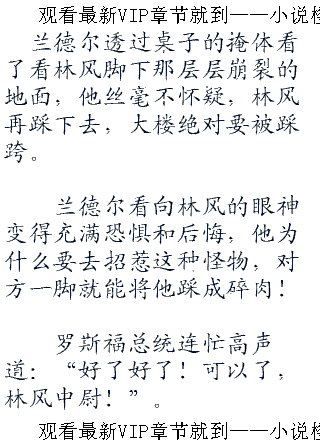 观看最新VIP章节就到——小说
兰德尔透过桌子的掩体看
了看林风脚下那层层崩裂的
地面，他丝毫不怀疑，林风
再踩下去，大楼绝对要被踩
跨。
兰德尔看向林风的眼神
变得充满恐惧和后悔，他为
什么要去招惹这种怪物，对
方一脚就能将他踩成碎肉！
罗斯福总统连忙高声
道：“好了好了！可以了，
林风中尉！”。
观看最新VIP章节就到——小说